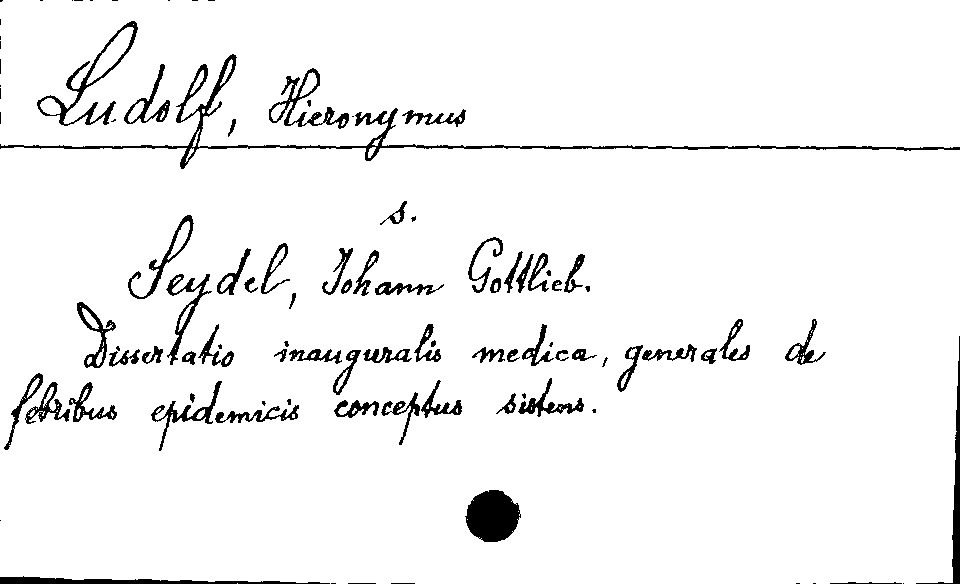 Ludolf, Hieronymus
s.
Seydel, Johann Gottlieb.
Dissertatio inauguralis medica, generales de
febribus epidemicis conceptus sistens.